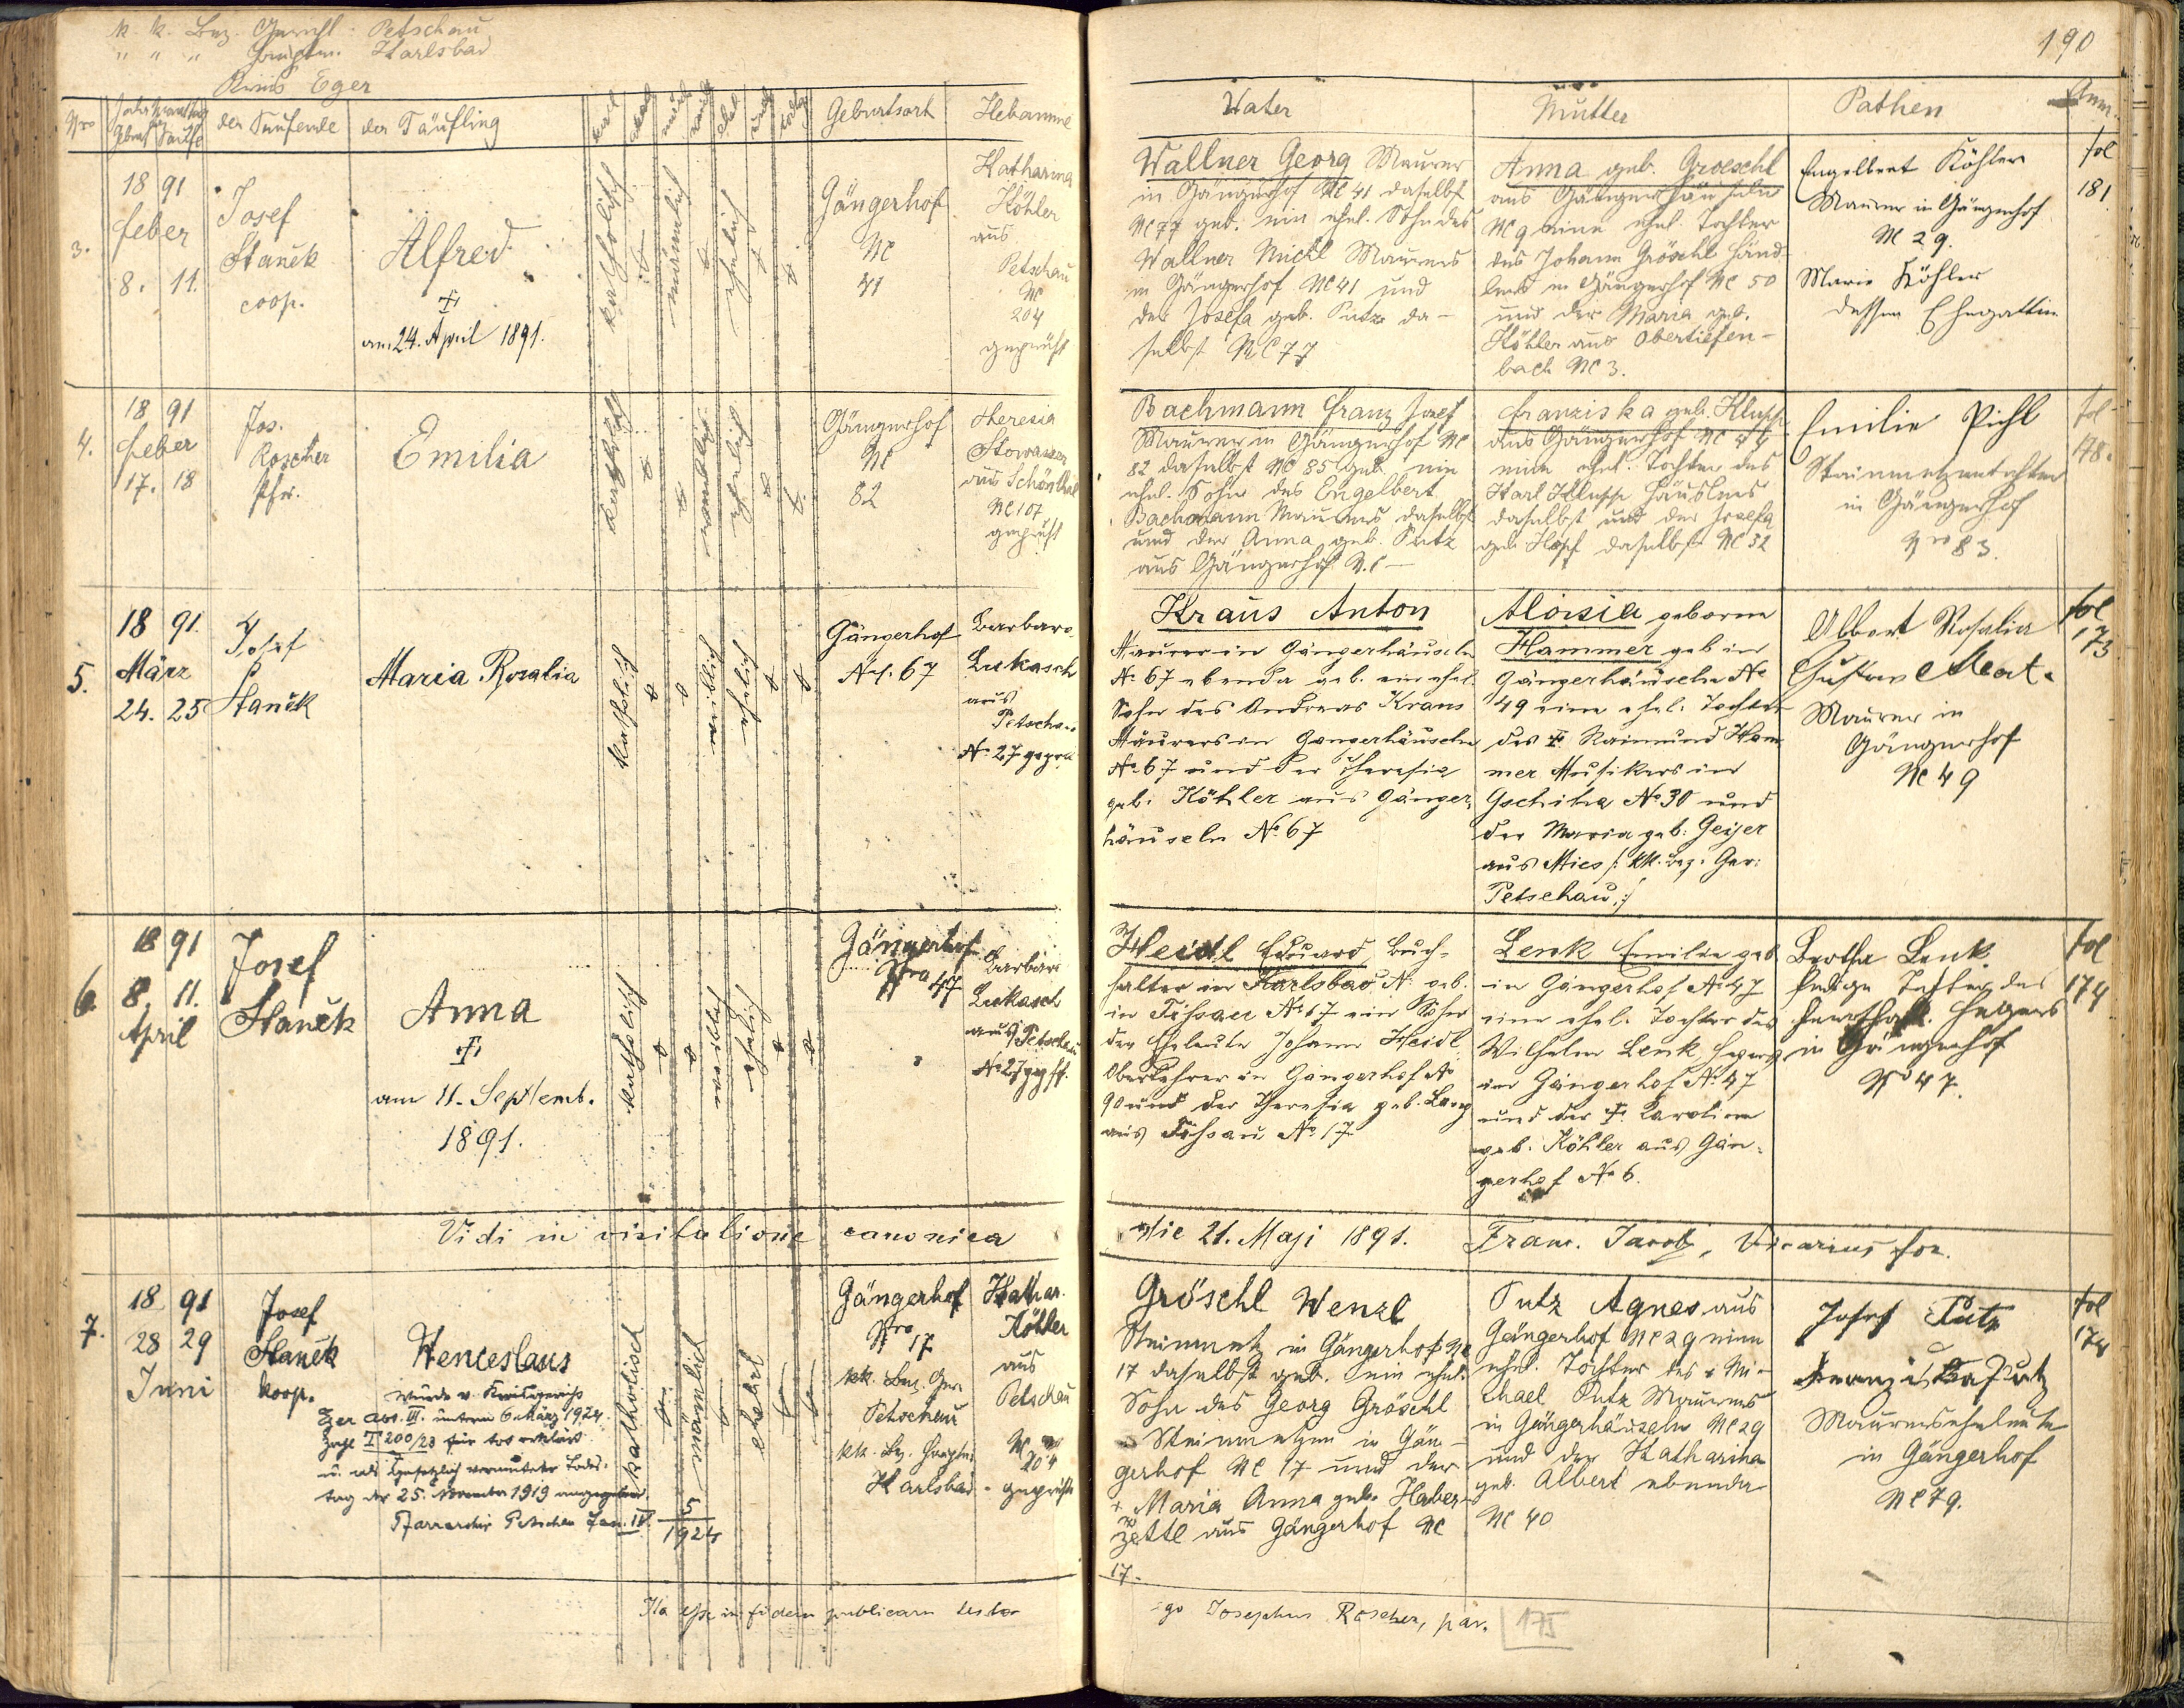 k. k. Bez. Gericht: Petschau
" " " Hauptm. Karlsbad
Kreis Eger
190
Nro
Geburt Taufe
der Taufende
der Täufling
Geburtsort
Hebamme
Vater
Mutter
Pathen
Anm.
3.
18 91
Feber
8. 11.
Josef
Staněk
coop.
Alfred
†
am 24. April 1891.
katholisch
männlich
ehelich
Gängerhof
NC
41
Katharina
Köhler
aus
Petschau
NC
204
geprüft
Wallner Georg Maurer
in Gängerhof NC 41 daselbst
NC 77 geb. ein ehel. Sohn des
Wallner Michl Maurers
in Gängerhof NC 41 und
der Josefa geb. Putz da-
selbst NC 77
Anna geb. Groeschl
aus Gängerhäuseln
NC 9 eine ehel. Tochter
des Johann Gröschl Händ-
lers in Gängerhof NC 50
und der Maria geb.
Köhler aus Obertiefen-
bach NC 3.
Engelbert Köhler
Maurer in Gängerhof
NC 29.
Marie Köhler
dessen Ehegattin
fol
181
4.
18 91
Feber
17. 18
Jos.
Roscher
Pfr.
Emilia
katholisch
weiblich
ehelich
Gängerhof
NC
82
Theresia
Stowasser
aus Schönthal
NC 107
geprüft
Bachmann Franz Josef
Maurer in Gängerhof NC
82 daselbst NC 85 geb. ein
ehel. Sohn des Engelbert
Bachmann Maurers daselbst
und der Anna geb. Putz
aus Gängerhof N.C —
Franziska geb. Klupp
aus Gängerhof NC 44
eine ehel. Tochter des
Karl Klupp Häuslers
daselbst und der Josefa
geb. Hopf daselbst NC 32
Emilie Pichl
Steinmetzentochter
in Gängerhof
Nro 83.
fol
178.
5.
18 91.
März
24. 25
Josef
Staněk
Maria Rosalia
katholisch
weiblich
ehelich
Gängerhof
N.C. 67
Barbara
Lukasch
aus
Petschau
No 27 gepr.
Kraus Anton
Maurer in Gängerhäuseln
No 67 ebenda geb. ein ehel.
Sohn des Andreas Kraus
Maurers in Gängerhäuseln
No 67 und der Theresia
geb. Köhler aus Gänger-
häuseln No 67
Aloisia geborne
Hammer geb in
Gängerhäuseln No
49 eine ehel. Tochter
des † Raimund Ham
mer Musikers in
Gschiha No 30 und
der Maria geb. Geijer
aus Mies /: kk. Bez. Ger:
Petschau :/
Albert Rosalia
Gustav
Maurer in
Gängerhof
NC 49
fol
173
6.
18 91
8. 11.
April
Josef
Staněk
Anna
†
am 11. Septemb.
1891.
katholisch
weiblich
ehelich
Gängerhof
Nro 47
Barbara
Lukasch
aus Petschau
No 27 gepft.
Heidl Eduard Buch-
halter in Karlsbad N. geb.
in Tissau No 67 ein Sohn
der Eheleute Johann Heidl
Oberlehrer in Gängerhof No
90 und der Theresia geb. Lang
aus Tissau No 17
Lenk Emilie geb
in Gängerhof No 47
eine ehel. Tochter des
Wilhelm Lenk Hegers
in Gängerhof No 47
und der † Karoline
geb. Köhler aus Gän-
gerhof No 6.
Bertha Lenk
ledige Tochter des
herrschaftl. Hegers
in Gängerhof
No 47.
fol
174
Vidi in visitatione canonica
die 21. Maji 1891. Franc. Jacob, Vicarius for.
7.
18 91
28 29
Juni
Josef
Staněk
koop.
Wenceslaus
Wurde v. Kreisgericht
Eger Abt. III. unterm 6. März 1924.
Zahl T 200/23 für tot erklärt
u. als gesetzlich vermuteter Todes-
tag der 25. November 1919 angegeben.
Pfarrarchiv Petschau Fasc. IV. 5/1924
katholisch
männlich
ehelich
Gängerhof
Nro 17
kk. Bez. Ger.
Petschau
kk. Bez. Hauptm.
Karlsbad
Kathar.
Köhler
aus
Petschau
NC
204
geprüft
Gröschl Wenzl
Steinmetz in Gängerhof NC
17 daselbst geb. ein ehel.
Sohn des Georg Gröschl
Steinmetzen in Gän-
gerhof NC 17 und der
† Maria Anna geb. Haber-
zettl aus Gängerhof NC
17.
Putz Agnes aus
Gängerhof NC 29 eine
ehel. Tochter des † Mi-
chael Putz Maurers
in Gängerhäuseln NC 29
und der Katharina
geb. Albert ebenda
NC 40
Josef Putz
Franziska Putz
Maurerseheleute
in Gängerhof
NC 79.
fol
174
Ita esse in fidem publicam testor
ego Josephus Roscher, par.
175